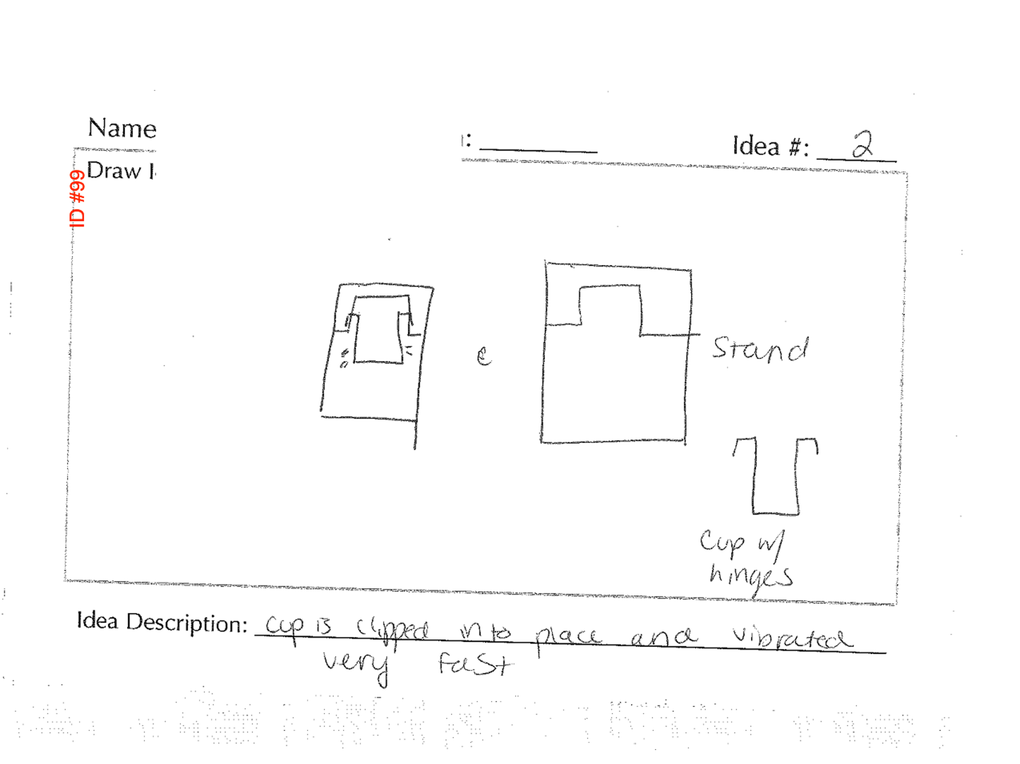 Name
: Idea #: 2
Draw I
ID #99
e
Stand
Cup w/
hinges
Idea Description: cup is clipped into place and vibrated
very fast